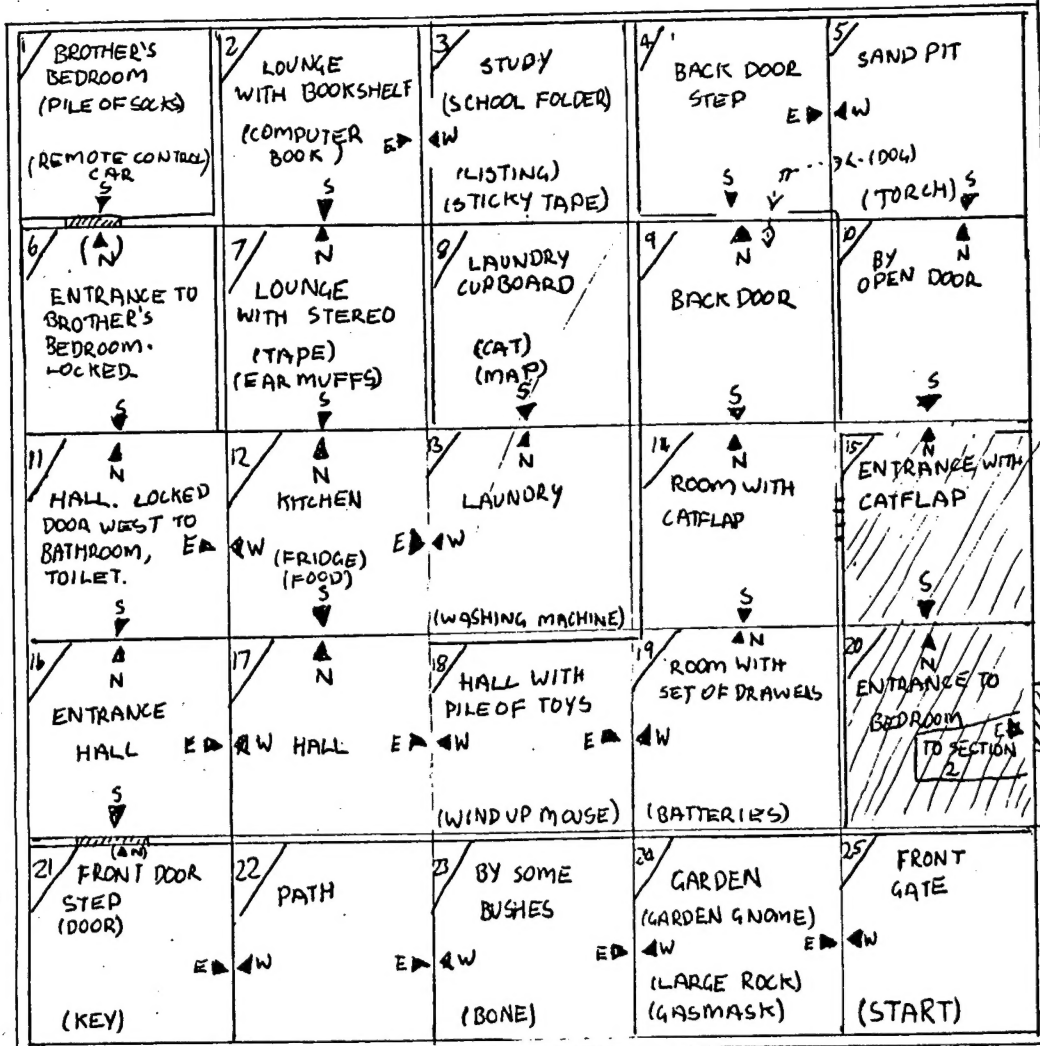 1
BROTHER'S
BEDROOM
(PILE OF SOCKS)
(REMOTE CONTROL)
CAR
S
2
LOUNGE
WITH BOOKSHELF
(COMPUTER
BOOK)
E
S
3
STUDY
(SCHOOL FOLDER)
W
(LISTING)
(STICKY TAPE)
4
BACK DOOR
STEP
E
S
5
SAND PIT
W
(DOG)
(TORCH)
S
6
(N)
ENTRANCE TO
BROTHER'S
BEDROOM.
LOCKED
S
7
N
LOUNGE
WITH STEREO
(TAPE)
(EAR MUFFS)
S
8
LAUNDRY
CUPBOARD
(CAT)
(MAP)
S
9
N
BACK DOOR
S
10
N
BY
OPEN DOOR
S
11
N
HALL. LOCKED
DOOR WEST TO
BATHROOM,
TOILET.
E
S
12
N
KITCHEN
W
E
(FRIDGE)
(FOOD)
S
13
N
LAUNDRY
W
(WASHING MACHINE)
14
N
ROOM WITH
CATFLAP
S
15
N
ENTRANCE WITH
CATFLAP
S
16
N
ENTRANCE
HALL
E
S
17
N
W HALL E
18
HALL WITH
PILE OF TOYS
W
E
(WIND UP MOUSE)
19
N
ROOM WITH
SET OF DRAWERS
W
(BATTERIES)
20
N
ENTRANCE TO
BEDROOM
E
TO SECTION
2
21
(N)
FRONT DOOR
STEP
(DOOR)
E
(KEY)
22
PATH
W
E
23
BY SOME
BUSHES
W
E
(BONE)
24
GARDEN
(GARDEN GNOME)
W
E
(LARGE ROCK)
(GASMASK)
25
FRONT
GATE
W
(START)